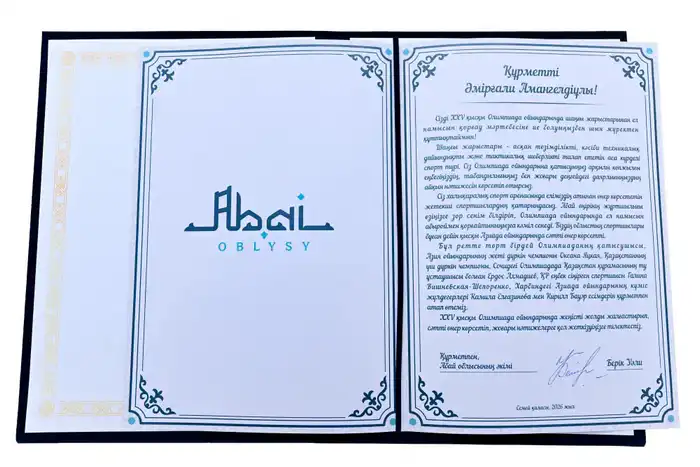 Abai
OBLYSY
Құрметті
Әмірғали Амангелдіұлы!
Сізді XXV қысқы Олимпиада ойындарында шаңғы жарыстарынан ел
намысын қорғау мәртебесіне ие болуыңызбен шын жүректен
құттықтаймын!
Шаңғы жарыстары – асқан төзімділікті, кәсіби техникалық
дайындықты және тактикалық шеберлікті талап ететін аса күрделі
спорт түрі. Сіз Олимпиадаға қатысуыңыз арқылы көпжылғы
еңбегіңіздің, табандылығыңыз бен жоғары деңгейдегі даярлығыңыздың
айқын нәтижесін көрсетіп отырсыз.
Сіз халықаралық спорт аренасында еліміздің атынан өнер көрсететін
жетекші спортшылардың қатарындасыз. Абай өңірінің жұртшылығы
өзіңізге зор сенім білдіріп, Олимпиада ойындарында ел намысын
абыроймен қорғайтыныңызға кәміл сенеді. Біздің облыстың спортшылары
бұған дейін қысқы Азиада ойындарында сәтті өнер көрсетті.
Бұл ретте төрт бірдей Олимпиаданың қатысушысы,
Азия ойындарының жеті дүркін чемпионы Оксана Яцкая, Қазақстанның
үш дүркін чемпионы, Сочидегі Олимпиадада Қазақстан құрамасының ту
ұстаушысы болған Ердос Ахмадиев, ҚР еңбек сіңірген спортшысы Галина
Вишневская-Шепоренко, Харбиндегі Азиада ойындарының күміс
жүлдегерлері Камила Елгазинова мен Кирилл Бауэр есімдерін құрметпен
атап өтеміз.
XXV қысқы Олимпиада ойындарында жеңісті жолды жалғастырып,
сәтті өнер көрсетіп, жоғары нәтижелерге қол жеткізуіңізге тілектеспіз.
Құрметпен,
Абай облысының әкімі
Берік Уәли
Семей қаласы, 2026 жыл